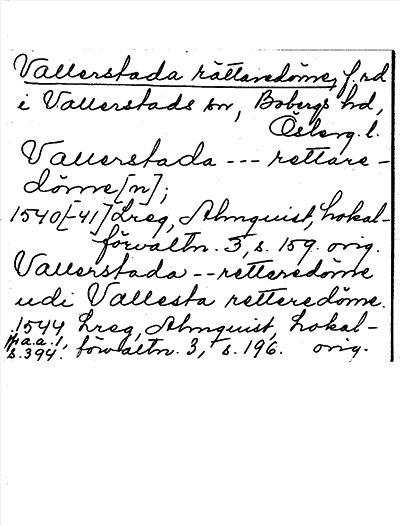 Vallerstada rättaredöme, f.rd
i Vallerstads sn, Bobergs hd,
Österg. l.
Vallerstada --- rettare-
döme[n];
1540[-41] Lreg, Almquist, Lokal-
förvaltn. 3, s. 159. orig.
Vallerstada -- retteredöme
udi Vallesta retteredöme.
1544 Lreg, Almquist, Lokal-
förvaltn. 3, s. 196. orig.
a.a. 1,
s. 394.